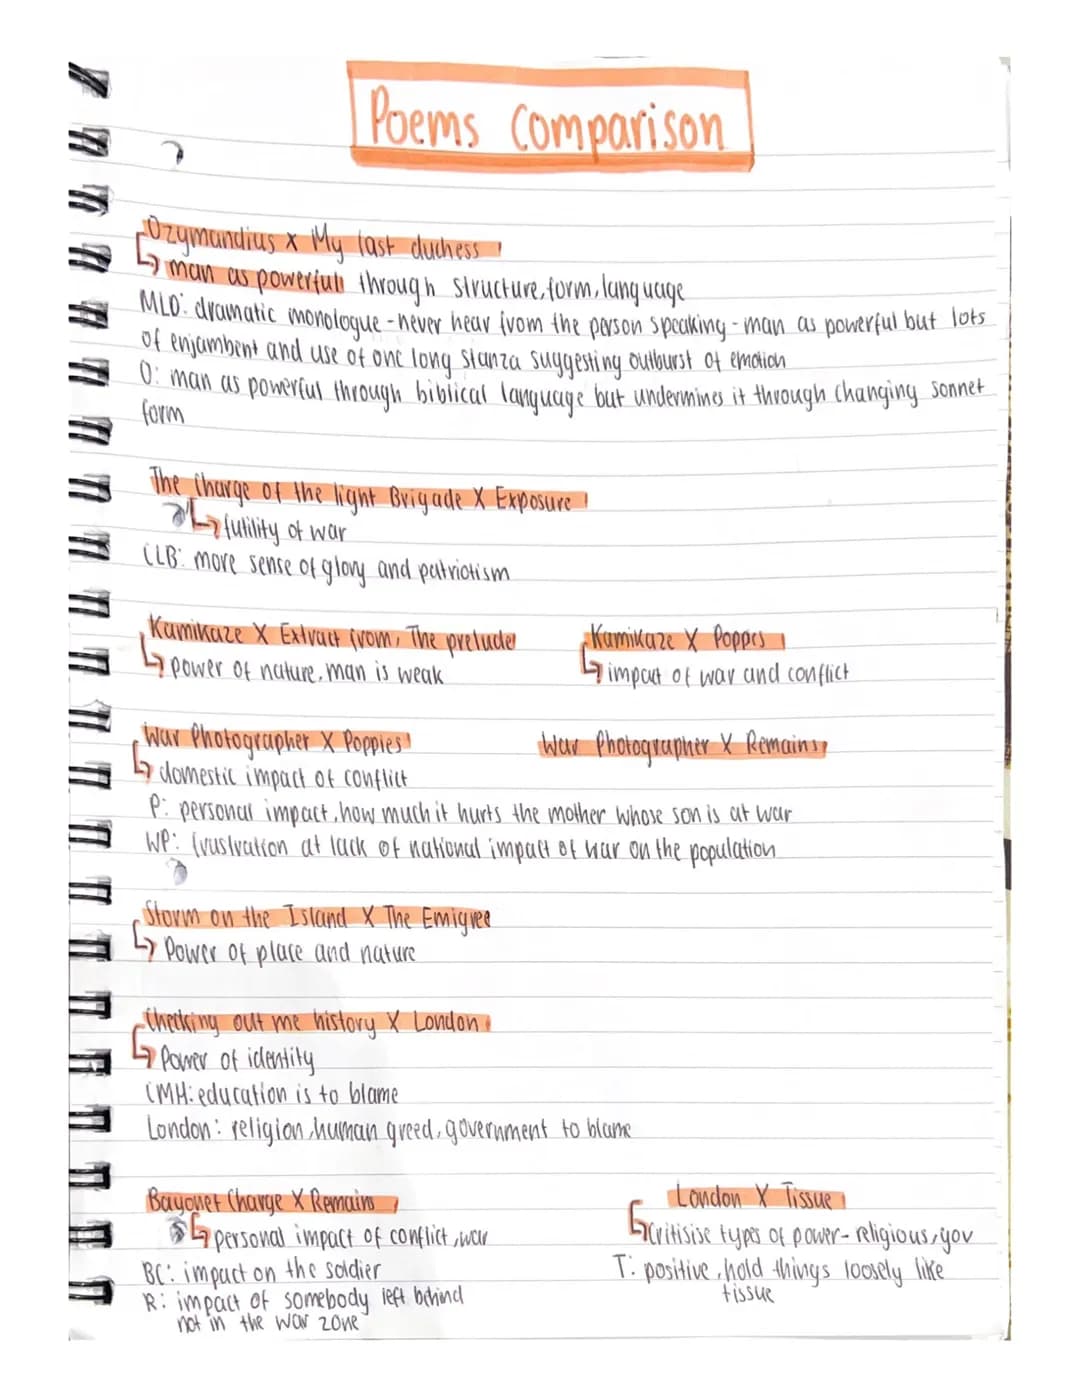 Poems Comparison
Ozymandius x My last duchess
↳ man as powerful through structure, form, language
MLD: dramatic monologue - never hear from the person speaking - man as powerful but lots
of enjambent and use of one long stanza suggesting outburst of emotion
O: man as powerful through biblical language but undermines it through changing sonnet
form
The Charge of the light Brigade X Exposure
↳ futility of war
CLB: more sense of glory and patriotism
Kamikaze X Extract from, The prelude
↳ power of nature, man is weak
Kamikaze X Poppies
↳ impact of war and conflict
War Photographer X Poppies
↳ domestic impact of conflict
War Photographer X Remains
P: personal impact, how much it hurts the mother whose son is at war
WP: frustration at lack of national impact of war on the population
Storm on the Island X The Emigree
↳ Power of place and nature
Checking out me history X London
↳ Power of identity
CMH: education is to blame
London: religion, human greed, government to blame
Bayonet Charge X Remains
↳ personal impact of conflict, war
BC: impact on the soldier
R: impact of somebody left behind
not in the war zone
London X Tissue
↳ critisise types of power - religious, gov
T: positive, hold things loosely like
tissue